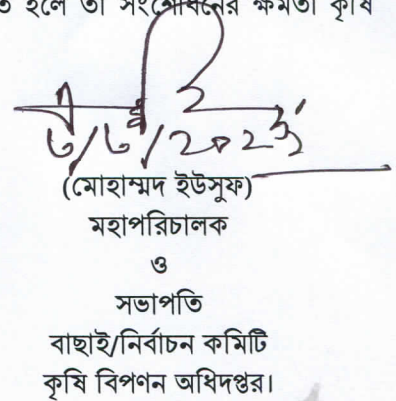 হলে তা সংশোধনের ক্ষমতা কৃষি
(মোহাম্মদ ইউসুফ)
মহাপরিচালক
ও
সভাপতি
বাছাই/নির্বাচন কমিটি
কৃষি বিপণন অধিদপ্তর।